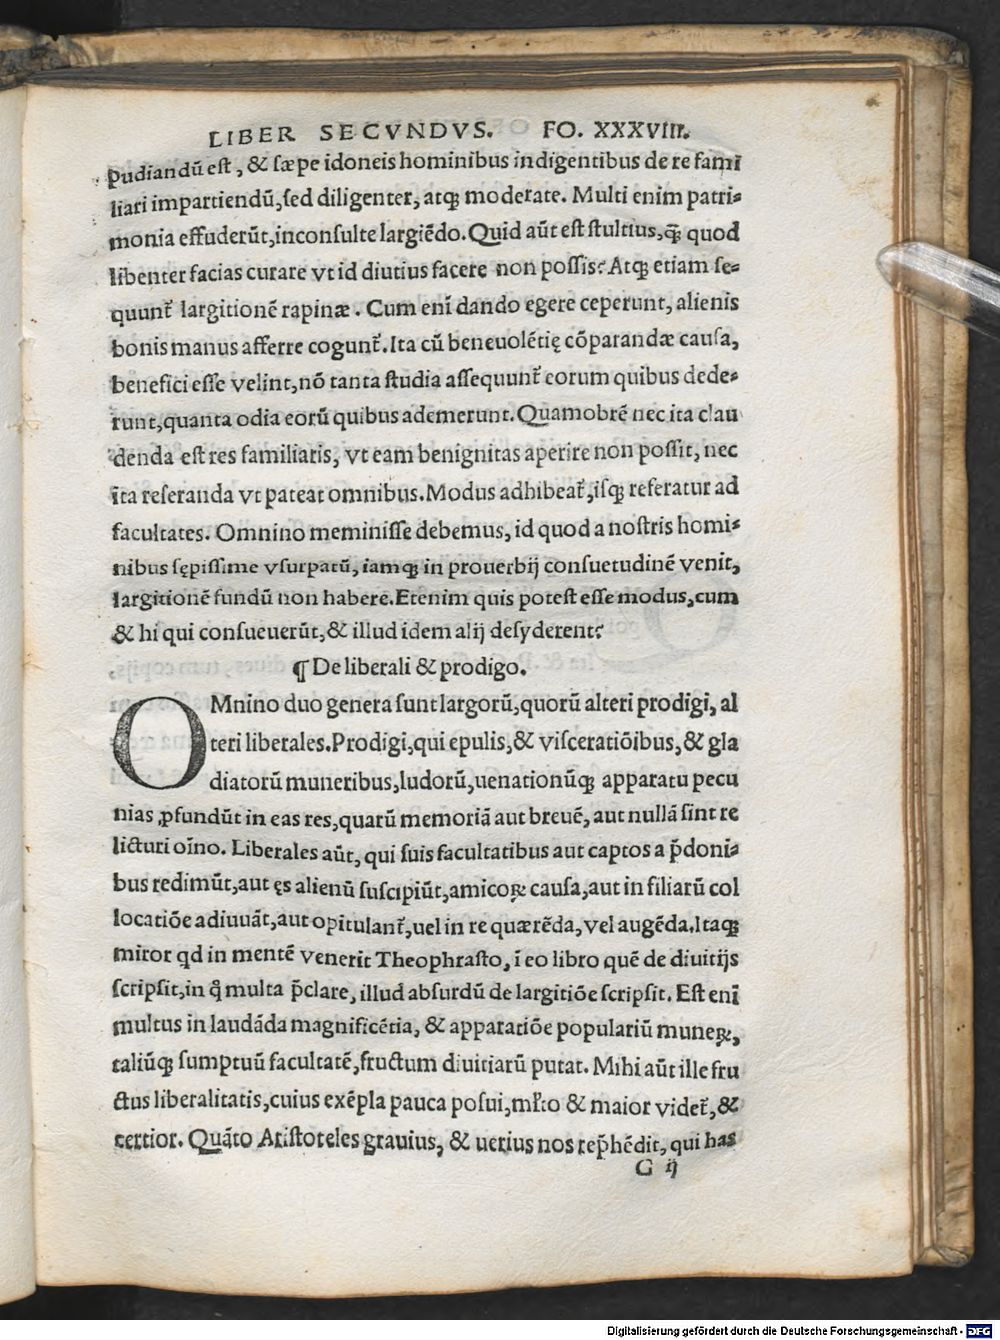 LIBER SECVNDVS. FO. XXXVIII.
pudiandũ est, & sæpe idoneis hominibus indigentibus de re fami
liari impartiendũ, sed diligenter, atqꝫ moderate. Multi enim patri-
monia effuderũt, inconsulte largiẽdo. Quid aũt est stultius, q̃ꝫ quod
libenter facias curare vt id diutius facere non possis? Atqꝫ etiam se-
quunt̃ largitionẽ rapinæ. Cum enĩ dando egere ceperunt, alienis
bonis manus afferre cogunt̃. Ita cũ beneuolẽtię cõparandæ causa,
benefici esse velint, nõ tanta studia assequunt̃ eorum quibus dede-
runt, quanta odia eorũ quibus ademerunt. Quamobrẽ nec ita clau
denda est res familiaris, vt eam benignitas aperire non possit, nec
ita reseranda vt pateat omnibus. Modus adhibeat̃, isqꝫ referatur ad
facultates. Omnino meminisse debemus, id quod a nostris homi-
nibus sępissime vsurpatũ, iamqꝫ in prouerbij consuetudinẽ venit,
largitionẽ fundũ non habere. Etenim quis potest esse modus, cum
& hi qui consueuerũt, & illud idem alij desyderent?
¶ De liberali & prodigo.
OMnino duo genera sunt largorũ, quorũ alteri prodigi, al
teri liberales. Prodigi, qui epulis, & visceratiõibus, & gla
diatorũ muneribus, ludorũ, uenationũqꝫ apparatu pecu
nias ꝓfundũt in eas res, quarũ memoriã aut breuẽ, aut nullã sint re
licturi oĩno. Liberales aũt, qui suis facultatibus aut captos a p̃doni-
bus redimũt, aut ęs alienũ suscipiũt, amicoꝝ causa, aut in filiarũ col
locatiõe adiuuãt, aut opitulant̃, uel in re quærẽda, vel augẽda. Itaqꝫ
miror qd in mentẽ venerit Theophrasto, ĩ eo libro quẽ de diuitijs
scripsit, in q̃ multa p̃clare, illud absurdũ de largitiõe scripsit. Est enĩ
multus in laudãda magnificẽtia, & apparatiõe populariũ muneꝝ,
taliũqꝫ sumptuũ facultatẽ, fructum diuitiarũ putat. Mihi aũt ille fru
ctus liberalitatis, cuius exẽpla pauca posui, ml̃to & maior videt̃, &
certior. Quãto Aristoteles grauius, & uerius nos rep̃hẽdit, qui has
G ij
Digitalisierung gefördert durch die Deutsche Forschungsgemeinschaft - DFG